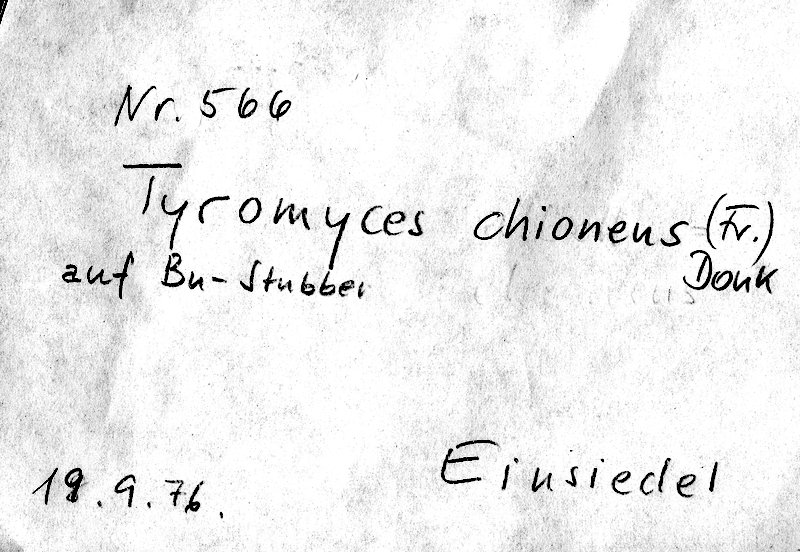 Nr. 566
Tyromyces chioneus (Fr.)
auf Bu-Stubben Donk
18.9.76. Einsiedel